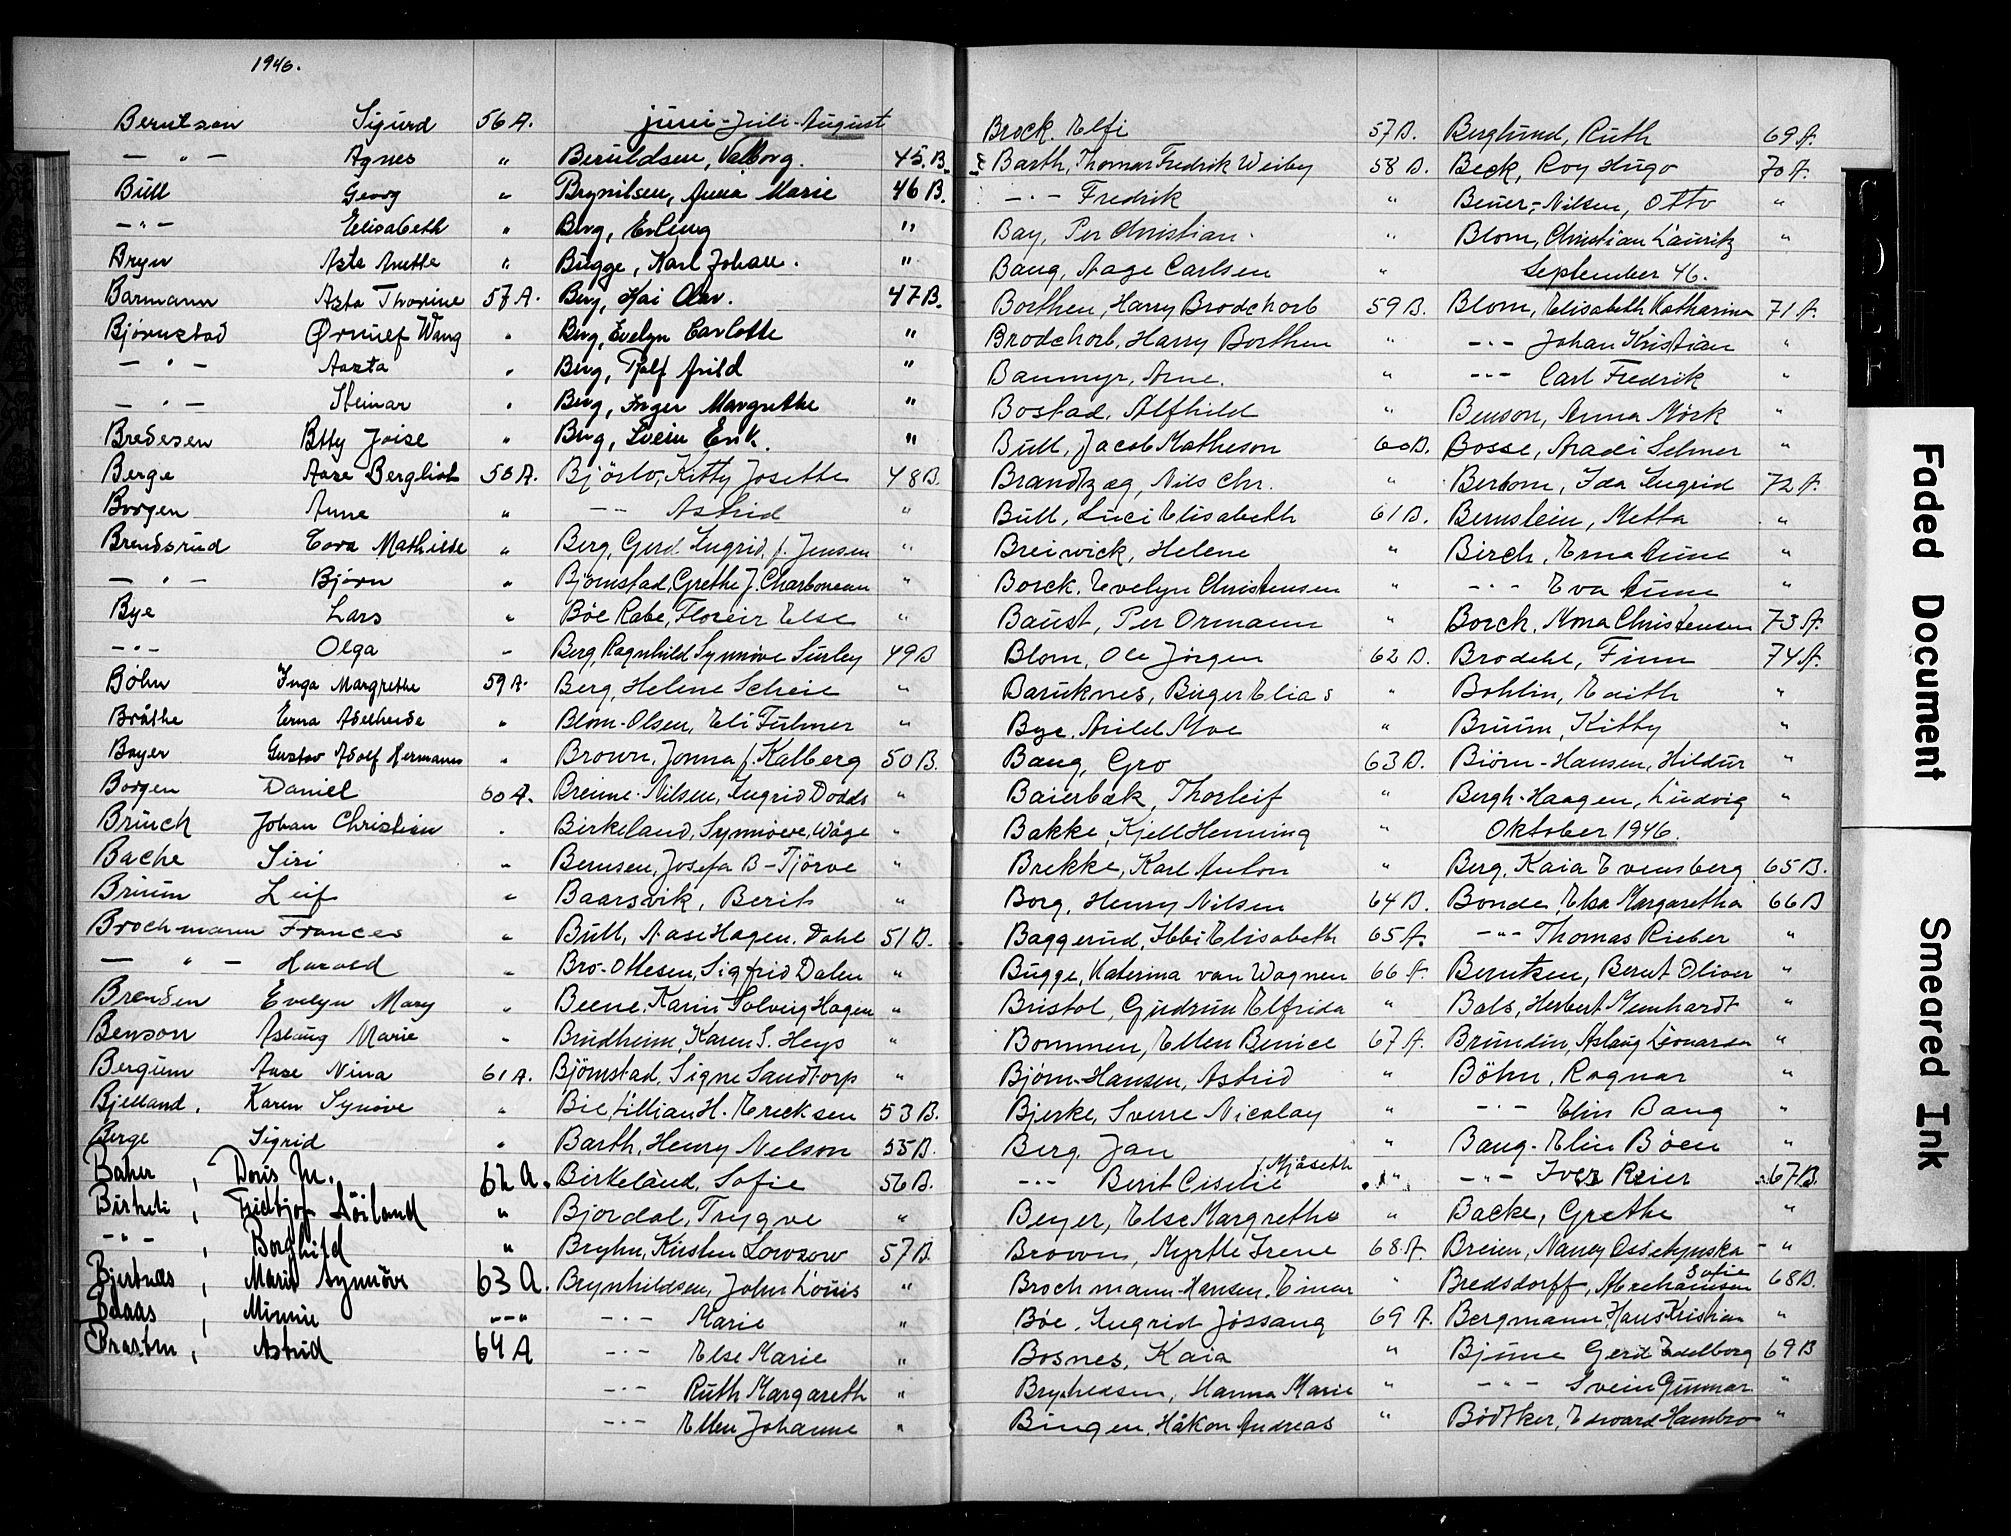 1946.
Berntsen Sigurd 56 A.
— " — Agnes "
Bull Georg "
— " — Elisabeth "
Bryn Asta Anette "
Barmann Asta Thorine 57 A.
Bjørnstad Ørnulf Wang "
— " — Aasta "
— " — Steinar "
Bredesen Betty Joise "
Berge Aase Bergliot 58 A.
Borgen Anne "
Brendsrud Cora Mathilde "
— " — Bjørn "
Bye Lars "
— " — Olga "
Bøhn Inga Margrethe 59 A.
Bråthe Erna Adelheide "
Bayer Gustav Adolf Hermann "
Borgen Daniel 60 A.
Brinch Johan Christian "
Bache Siri "
Bruun Leif "
Brochmann Frances "
— " — Harald "
Brenden Evelyn Mary "
Benson Aslaug Marie "
Bergum Aase Nina 61 A.
Bjelland, Karen Synøve "
Berge Sigrid "
Baker, Doris M. 62 A.
Birkeli, Fridtjof Söiland "
— " —, Borghild "
Bjertnæs, Marit Synnöve 63 A.
Baaas, Minnie — " —
Braaten, Astrid 64 A
juni - Juli - August
Beruldsen, Valborg. 45. B.
Brynilsen, Anna Marie 46 B.
Berg, Erling "
Bugge, Karl Johan. "
Berg, Kai Olav. 47 B.
Berg, Evelyn Carlotte "
Berg, Rolf Arild "
Berg, Inger Margrethe "
Berg, Svein Erik. "
Bjöslo, Kitty Josette 48 B.
— " — Astrid "
Berg, Gerd Ingrid, f. Jensen "
Bjørnstad, Grethe f. Charboneau "
Bøe Rabe, Floreir Else "
Berg, Ragnhild Synnöve Sürley 49 B
Berg, Helene Scheie "
Blom-Olsen, Eli Fulmer "
Brown, Jonna f. Kalberg 50 B.
Brenne-Nilsen, Ingrid Dodds "
Birkeland, Synnöve, Wåge "
Bernsen, Josefa B-Tjörve "
Baarsvik, Berit "
Bull, Aase Hagen. Dahl 51 B.
Bro-Ottesen, Sigfrid Dalen "
Beene, Karin Solveig Hagen "
Brudheim, Karen S. Heys "
Bjørnstad, Signe Sandtorp "
Bie Lillian H. Ericksen 53 B.
Barth, Henry Nelson 55 B.
Birkeland, Sofie 56 B.
Bjordal, Trygve "
Bryhn, Kirsten Lowzow 57 B.
Brynhildsen, John Louis "
— " — Marie "
— " — Else Marie "
— " — Ruth Margareth "
— " — Ellen Johanne "
Brock. Elfi 57 B.
Barth, Thomas Fredrik Weiby 58 B.
— " — Fredrik "
Bay, Per Christian. "
Bang, Aage Carlsen "
Borthen, Harry Brodchorb 59 B.
Brodchorb, Harry Borthen "
Banmyr, Arne. "
Bostad, Alfhild "
Bull, Jacob Matheson 60 B.
Brandtzæg, Nils Chr. "
Bull, Luci Elisabeth 61 B.
Breiwick, Helene "
Borck. Evelyn Christensen "
Baust, Per Ormann "
Blom, Ole Jörgen 62 B.
Baruknes, Birger Elias "
Bye. Arild Moe "
Bang, Gro 63 B.
Baierbak, Thorleif "
Bakke, Kjell Henning "
Brekke, Karl Anton "
Borg, Henry Nilsen 64 B.
Baggerud, Ebbi Elisabeth 65 A.
Bugge, Katerina van Wagnen 66 A.
Bristol, Gudrun Elfrida "
Bommen, Ellen Benice 67 A.
Bjørn-Hansen, Astrid "
Bjerke, Sverre Nicolay "
Berg, Jan "
— " — Berit Ciselie f. Mjåseth "
Beyer, Else Margrethe "
Brown, Myrtle Irene 68 A.
Brochmann-Hansen, Einar "
Bøe, Ingrid Jössang 69 A.
Bosnes, Kaia "
Bryhldsen, Hanna Marie "
Bingen, Håkon Andreas "
Berglund, Ruth 69 A.
Beck, Roy Hugo 70 A.
Beuer-Nilsen, Otto "
Blom, Christian Lauritz "
September 46.
Blom, Elisabeth Katharina 71 A.
— " — Johan Kristian "
— " — Carl Fredrik "
Benson, Anna Mörk "
Bosse, Aradi Selmer "
Berbom, Ida Ingrid 72 A.
Bernstein, Metta "
Birch, Erna Aune "
— " — Eva Aune "
Borch. Mona Christensen 73 A.
Brodahl, Finn 74 A.
Bohlin, Edith "
Bruun, Kitty "
Biörn-Hansen, Hildur "
Bergh-Haagen, Ludvig "
Oktober 1946.
Berg, Kaia Evensberg 65 B.
Bonde, Elsa Margaretha 66 B
— " — Thomas Rieber "
Berntsen, Bernt Oliver "
Bals, Herbert Meinhardt "
Brundin, Aslaug Leonarda "
Bøhn, Ragnar "
— " — Elin Bang "
Bang-Elin Böen "
— " — Iver Reier 67 B.
Backe, Grethe "
Breien, Nancy Ossetynska - "
Bredsdorff, Abrehamsen Sofie 68 B.
Bergmann, Hans Kristian "
Bjune Gerd Edelborg 69 B
— " — Svein Gunnar "
Bödtker, Edward Hambro "
Faded Document
Smeared Ink